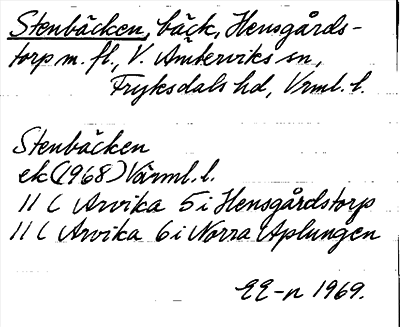 Stenbäcken, bäck, Hensgårds-
torp m. fl., V. Ämterviks sn,
Fryksdals hd, Vrml. l.
Stenbäcken
ek (1968) Värml. l.
11 C Arvika 5 i Hensgårdstorp
11 C Arvika 6 i Norra Aplungen
EE-n 1969.